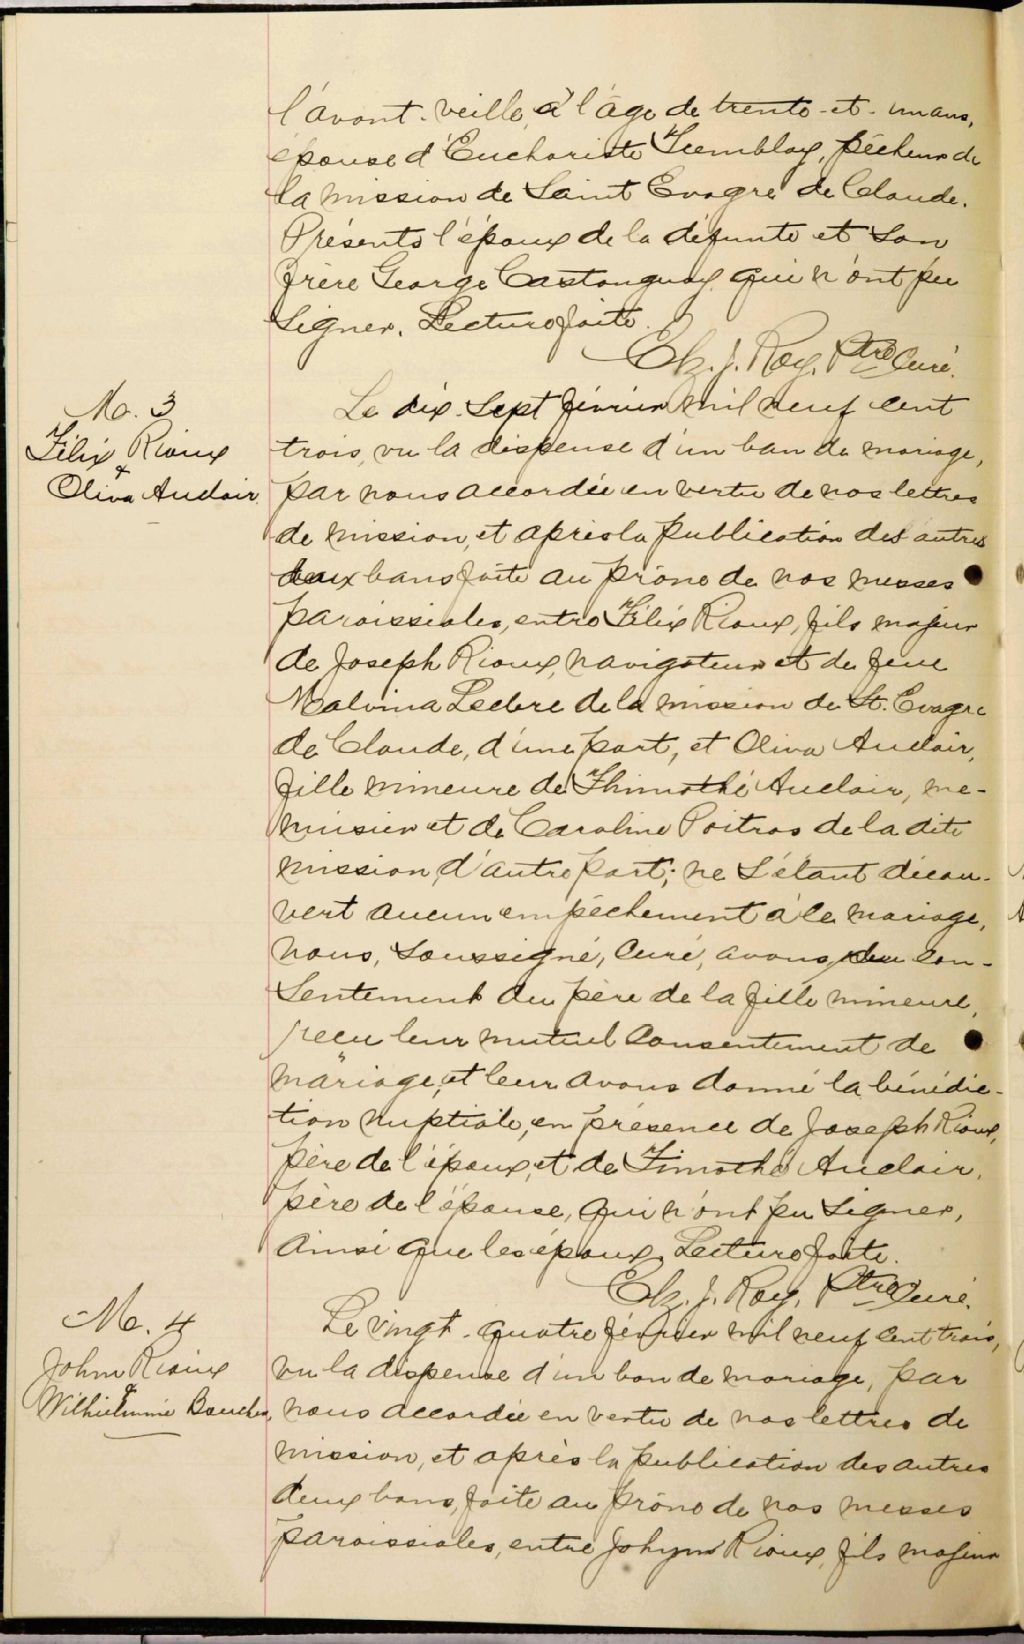 l'avant-veille, à l'âge de trente-et-un ans,
épouse d'Euchariste Tremblay, pêcheur de
la mission de Saint Evagre de Cloude.
Présents l'époux de la défunte et son
frère George Castonguay qui n'ont pu
signer. Lecture faite.
Elz. J. Roy, Ptre Curé.
M. 3
Félix Rioux
&
Oliva Auclair
Le dix-sept février mil neuf cent
trois, vu la dispense d'un ban de mariage,
par nous accordée en vertu de nos lettres
de mission, et après la publication des autres
deux bans faite au prône de nos messes
paroissiales, entre Félix Rioux, fils majeur
de Joseph Rioux, navigateur et de feue
Malvina Leclerc de la mission de St. Evagre
de Cloude, d'une part, et Oliva Auclair,
fille mineure de Thimothé Auclair, me-
nuisier et de Caroline Poitras de la dite
mission, d'autre part; ne s'étant décou-
vert aucun empêchement à ce mariage,
nous, soussigné, curé, avons, du con-
sentement du père de la fille mineure,
reçu leur mutuel consentement de
mariage, et leur avons donné la bénédic-
tion nuptiale, en présence de Joseph Rioux,
père de l'époux, et de Timothé Auclair,
père de l'épouse, qui n'ont pu signer,
ainsi que les époux. Lecture faite.
Elz. J. Roy, Ptre Curé.
M. 4
John Rioux
&
Wilhielmine Boucher
Le vingt-quatre février mil neuf cent trois,
vu la dispense d'un ban de mariage, par
nous accordée en vertu de nos lettres de
mission, et après la publication des autres
deux bans, faite au prône de nos messes
paroissiales, entre Johyn Rioux, fils majeur